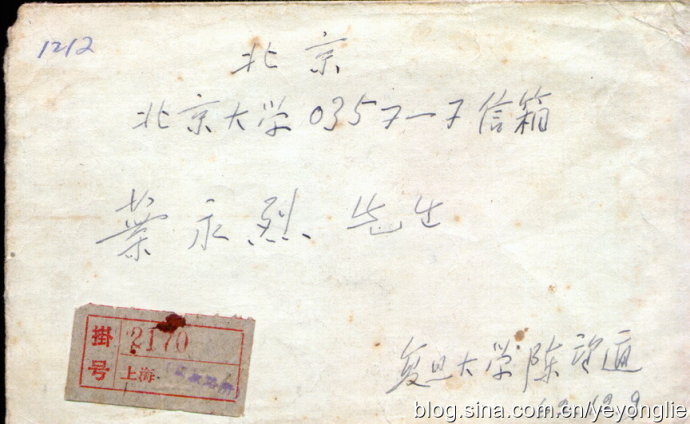 1212
北京
北京大学0357-7信箱
葉永烈 先生
掛号
2170
上海
复旦大学陈望道
blog.sina.com.cn/yeyonglie